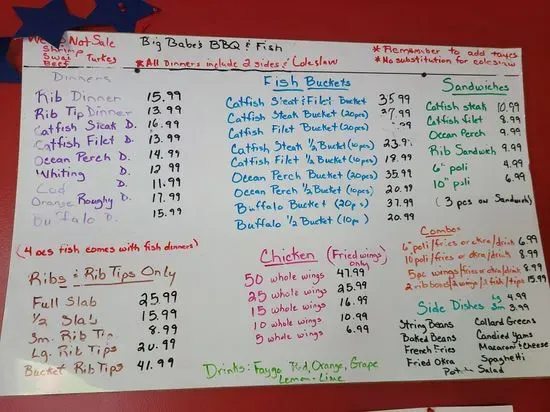 We Do Not Sale
Shrimp
Swai Turkey
Beef
Big Babe's BBQ & Fish
*All Dinners include 2 sides & Coleslaw
*Remember to add taxes
*No substitution for coleslaw
Dinners
Rib Dinner 15.99
Rib Tip Dinner 13.99
Catfish Steak D. 16.99
Catfish Filet D. 13.99
Ocean Perch D. 14.99
Whiting D. 12.99
Cod D. 11.99
Orange Roughy D. 17.99
Buffalo D. 15.99
(4 ocs fish comes with fish dinners)
Ribs & Rib Tips Only
Full Slab 25.99
1/2 Slab 15.99
Sm. Rib Tip 8.99
Lg. Rib Tips 20.99
Bucket Rib Tips 41.99
Fish Buckets
Catfish Steak & Filet Bucket 35.99
Catfish Steak Bucket (20pcs) 37.99
Catfish Filet Bucket (20pcs)
Catfish Steak 1/2 Bucket (10pcs) 23.99
Catfish Filet 1/2 Bucket (10pcs) 18.99
Ocean Perch Bucket (20pcs) 35.99
Ocean Perch 1/2 Bucket (10pcs) 20.99
Buffalo Bucket (20pc) 37.99
Buffalo 1/2 Bucket (10pc) 20.99
Chicken (Fried wings) only
50 whole wings 47.99
25 whole wings 25.99
15 whole wings 16.99
10 whole wings 10.99
5 whole wings 6.99
Drinks: Faygo Red, Orange, Grape
Lemon-Lime
Sandwiches
Catfish steak 10.99
Catfish filet 8.99
Ocean Perch 9.99
Rib Sandwich 9.99
6" poli 4.99
10" poli 6.99
(3 pcs on Sandwich)
Combos
6" poli/fries or okra/drink 6.99
10 poli/fries or okra/drink 8.99
5pc wings/fries or okra/drink 8.99
2 rib bones/2 wings/2 fish/tips 15.99
Side Dishes Lg 4.99
Sm 3.99
String Beans Collard Greens
Baked Beans Candied Yams
French Fries Macaroni & Cheese
Fried Okra Spaghetti
Potato Salad